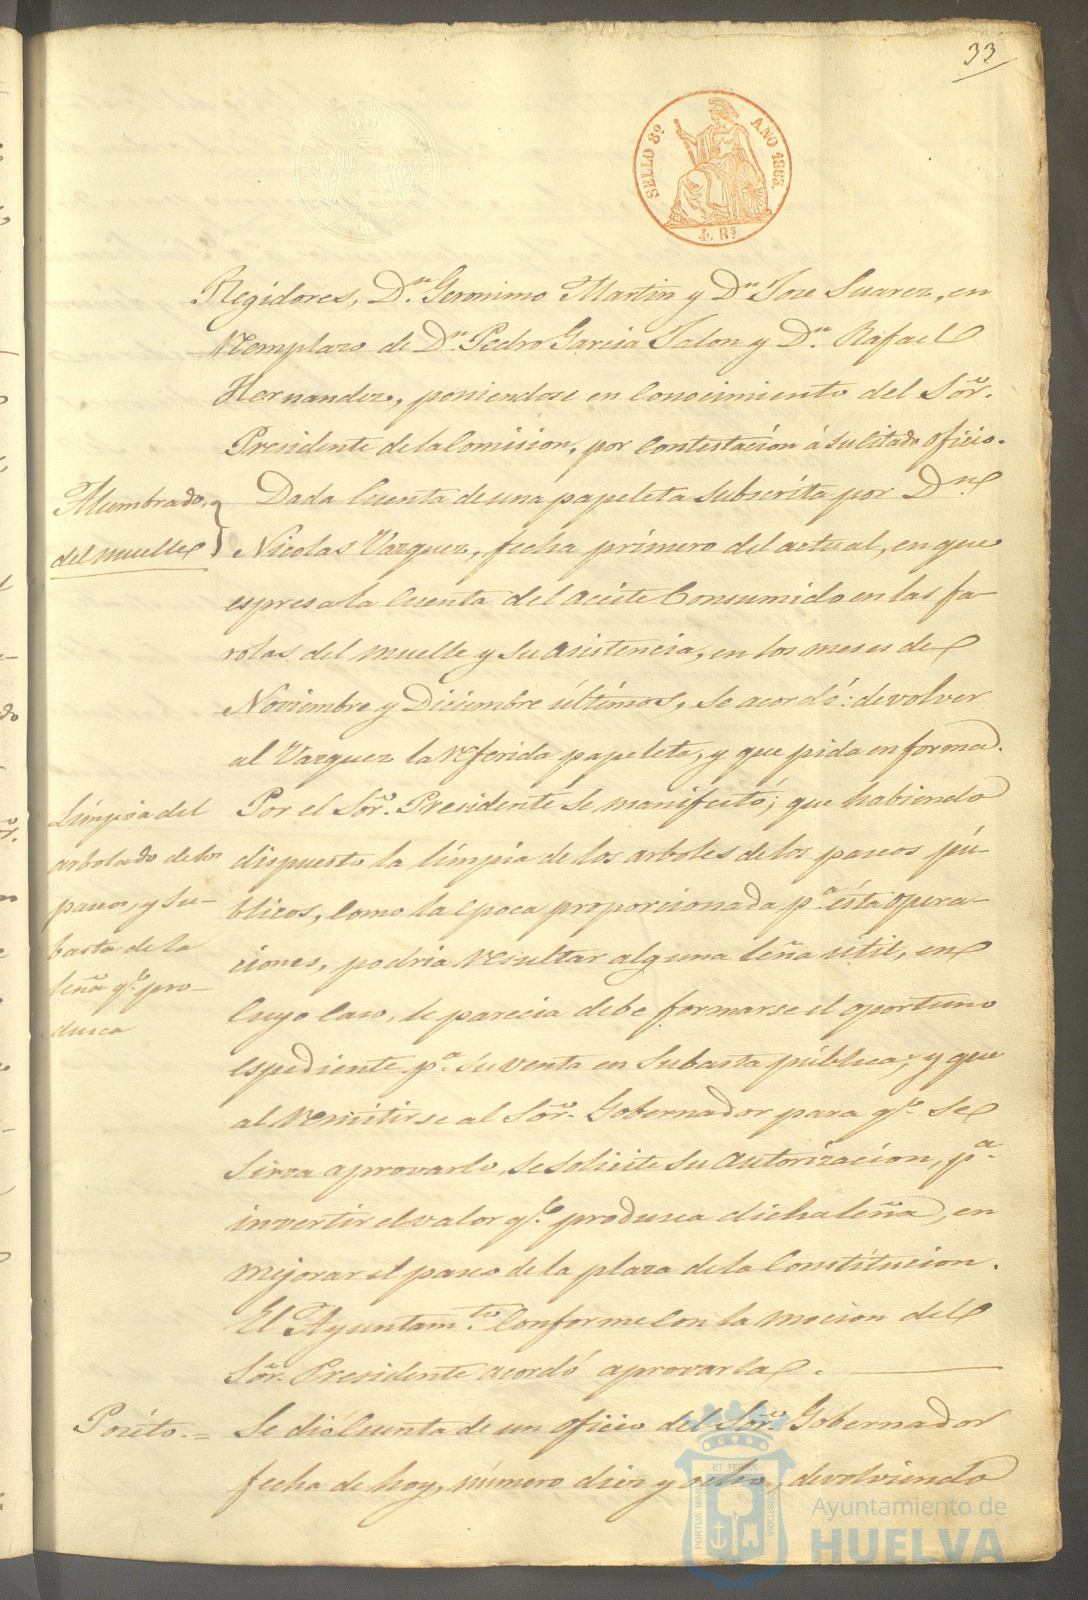 33
SELLO 8º AÑO 1863.
4. Rs
Regidores, Dn. Geronimo Martin y Dn Jose Suarez, en
remplazo de Dn Pedro Garcia Jalon y Dn. Rafael
Hernandez, poniendose en conocimiento del Sor.
Presidente de la Comision, por contestación á su citado oficio.
Alumbrado
del muelle
Dada cuenta de una papeleta subscrita por Dn
Nicolas Vazquez, fecha primero del actual, en que
espresa la cuenta del aceite consumido en las fa-
rolas del muelle y su asistencia, en los meses de
Noviembre y Diciembre últimos, se acordó: devolver
al Vazquez la referida papeleta, y que pida en forma.
Límpia del
arbolado de los
paseos, y su-
basta de la
leña qe. pro-
dusca
Por el Sor. Presidente se manifestó; que habiendo
dispuesto la límpia de los arboles de los paseos pú-
blicos, como la epoca proporcionada pa. ésta opera-
ciones, podria resultar alguna leña útil, en
cuyo caso, le parecia debe formarse el oportuno
espediente pa. su venta en subasta pública; y que
al remitirse al Sor. Gobernador para qe. se
sirva aprovarlo, se solicite su autorización, pa.
invertir el valor qe. produsca dicha leña, en
mejorar el paseo de la plaza de la Constitucion.
El Ayuntamto. conforme con la mocion del
Sor. Presidente acordó aprovarla.
Pósito.=
Se dió cuenta de un oficio del Sor. Gobernador
fecha de hoy, número diez y ocho, devolviendo
PORTUS MARIS ET TERRAE CUSTODIA
Ayuntamiento de
HUELVA